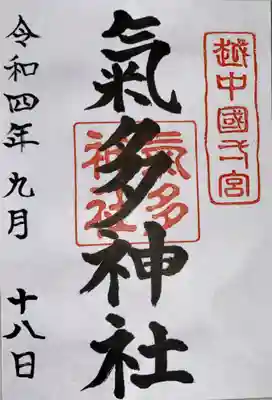 越中國一宮
氣多神社
氣多神社
令和四年九月十八日